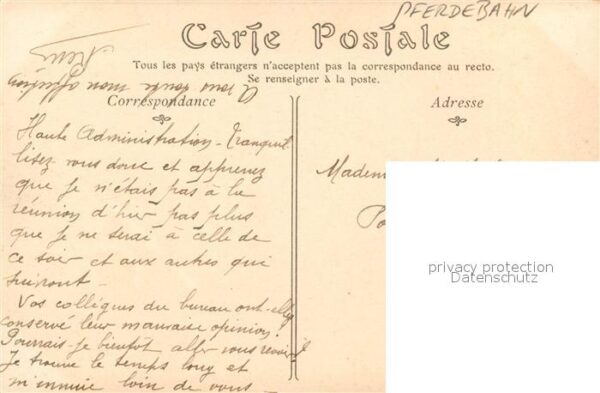 PFERDEBAHN
Carte Postale
Tous les pays étrangers n'acceptent pas la correspondance au recto.
Se renseigner à la poste.
Correspondance
Adresse
Haute Administration - Tranquil
lisez vous donc et apprenez
que je n'étais pas à la
réunion d'hier pas plus
que je ne serai à celle de
ce soir et aux autres qui
suivront -
Vos collègues du bureau ont-elles
conservé leur mauvaise opinion?
Pourrais-je bientôt aller vous revoir?
Je trouve le temps long et
m'ennuie loin de vous -
A vous toute mon affection
Madem
privacy protection
Datenschutz